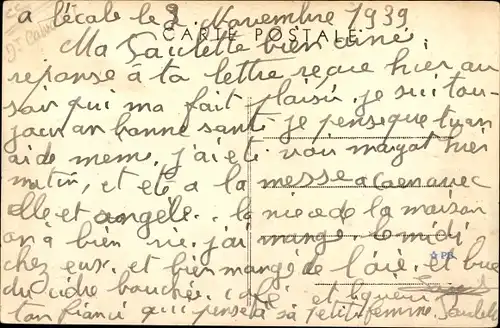 a l'écale le 2 Novembre 1939
CARTE POSTALE
Ma Paulette bien aimé,
reponse à ta lettre reçue hier au
soir qui ma fait plaisir. je suis tou-
jour an bonne santé je pense que tu an
aide meme. j'ai eté voir margot hier
matin, et eté a la messe a Caen avec
elle et angèle.. la niece de la maison
on à bien rie. j'ai mangé ce midi
chez eux. et bien mangé de l'oie. et bue
du cidre bouchée. café et liqueur
ton fiancé qui pense à sa petite femme. Paulette